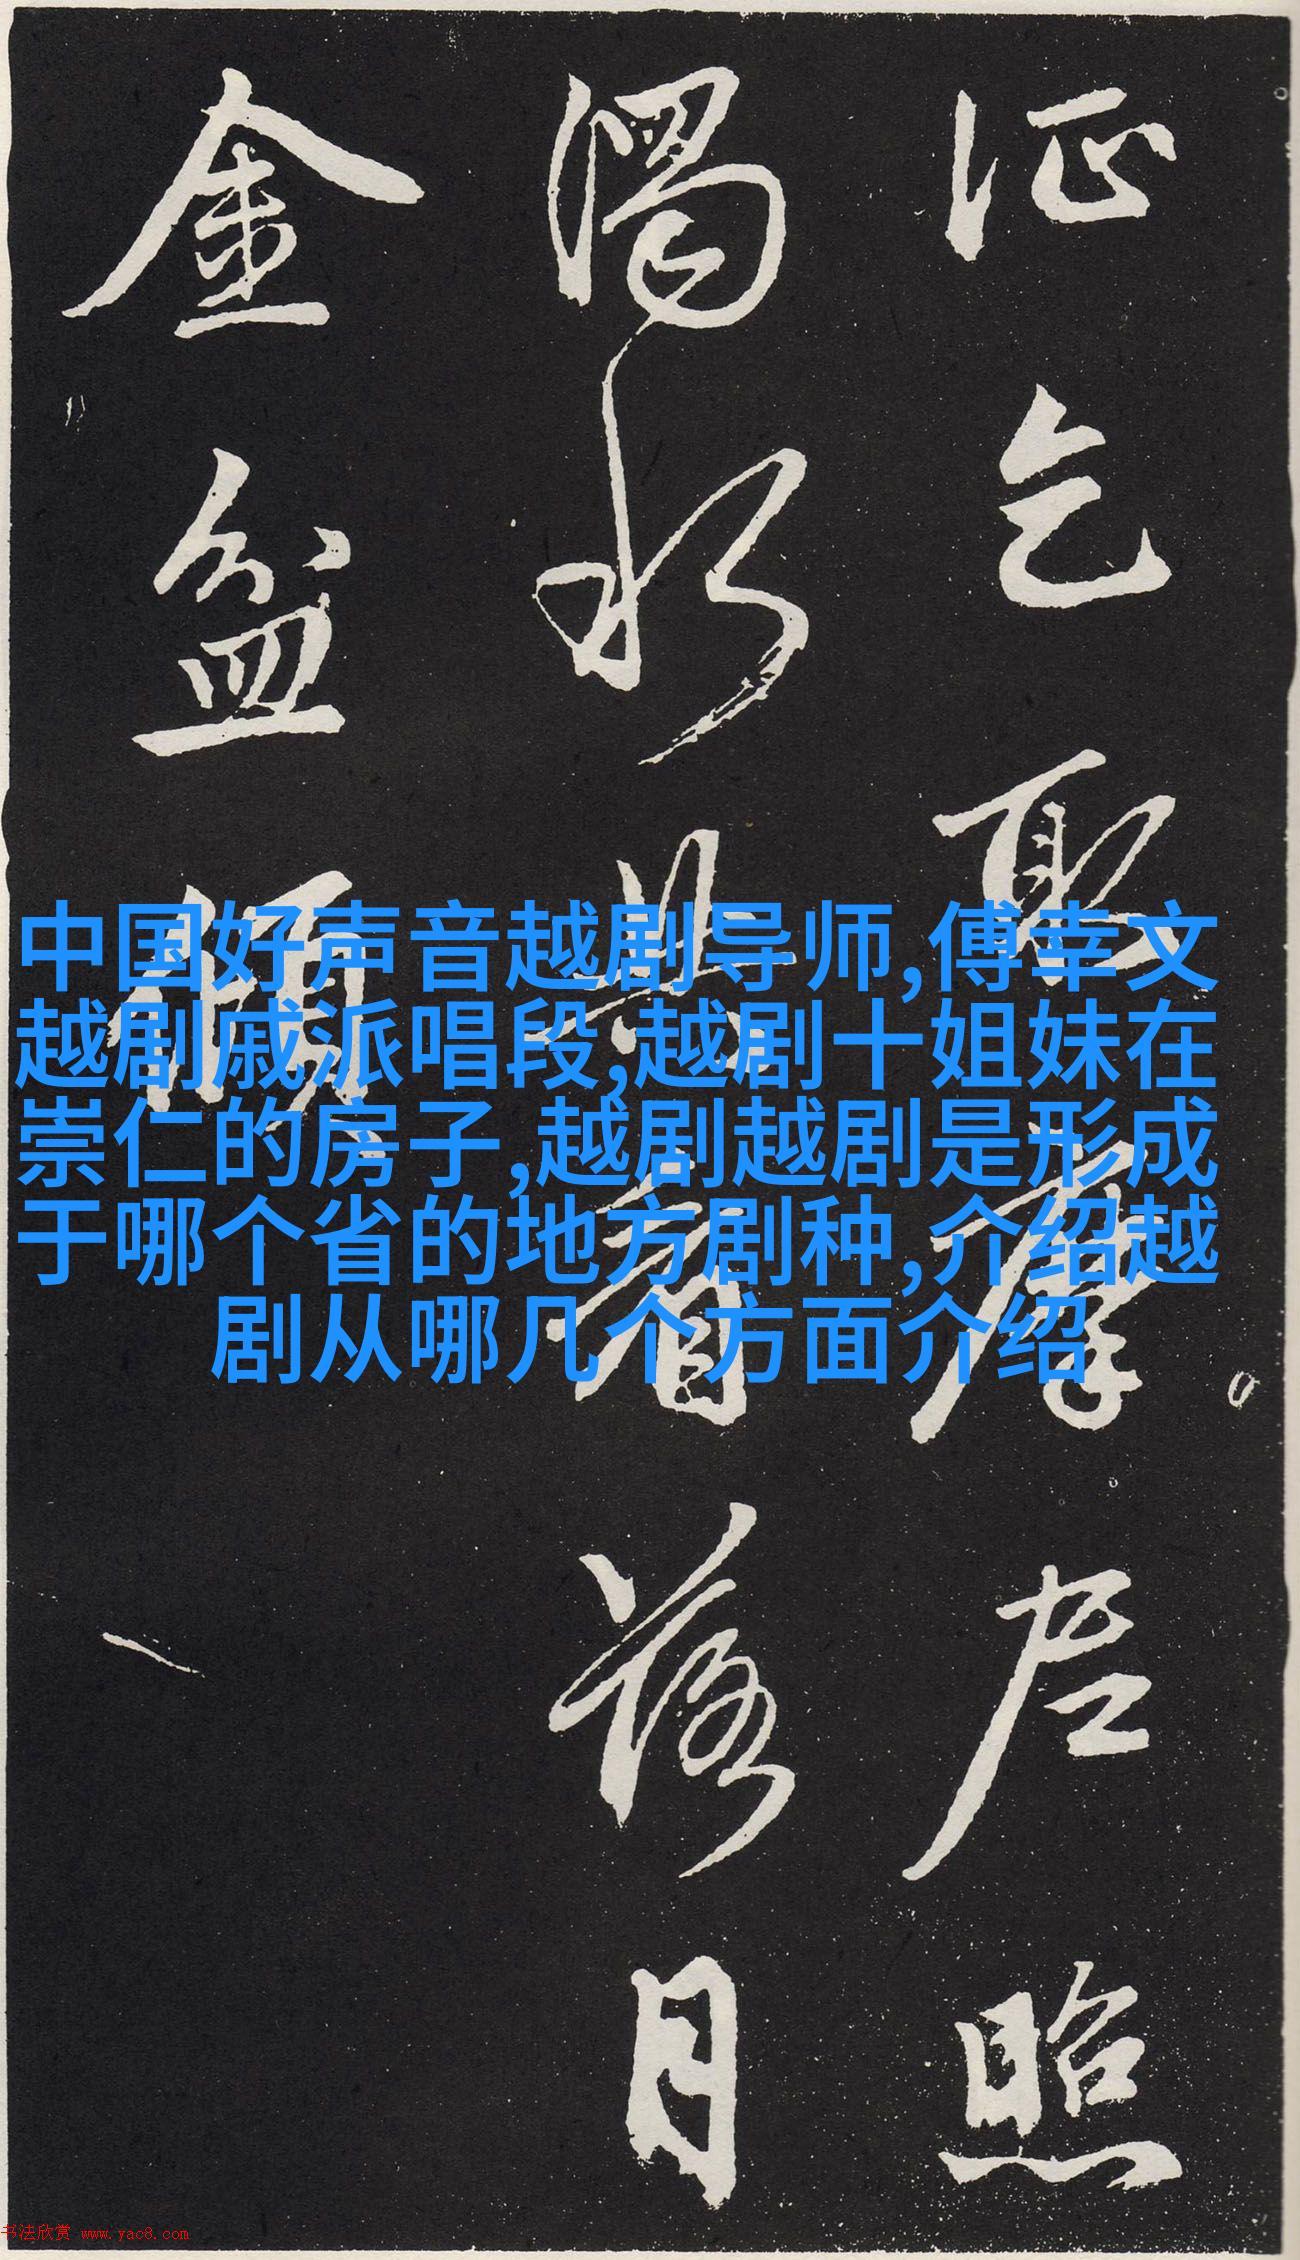 泜乞聚群左照
濁水共看落月
金盆傾
中国好声音越剧导师,傅幸文
越剧戚派唱段,越剧十姐妹在
崇仁的房子,越剧越剧是形成
于哪个省的地方剧种,介绍越
剧从哪几个方面介绍
书法欣赏 www.yac8.com